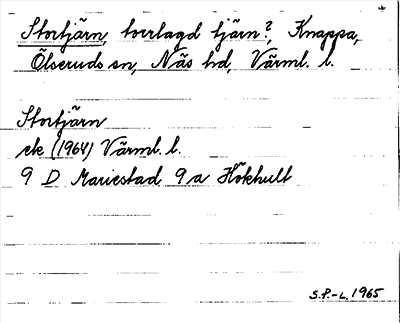 Stortjärn, torrlagd tjärn?, Knappa,
Ölseruds sn, Näs hd, Värml. l.
Stortjärn
ek (1964) Värml. l.
9 D Mariestad 9 a Hökhult
S.P.-L. 1965